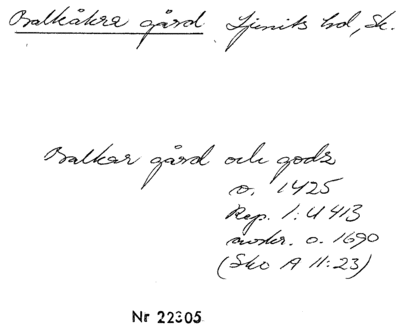 Balkåkra gård Ljunits hd, Sk.
Balkar gård och gods
o. 1425
Rep. 1:4413
avskr. o. 1690
(Sko A 11:23)
Nr 22305